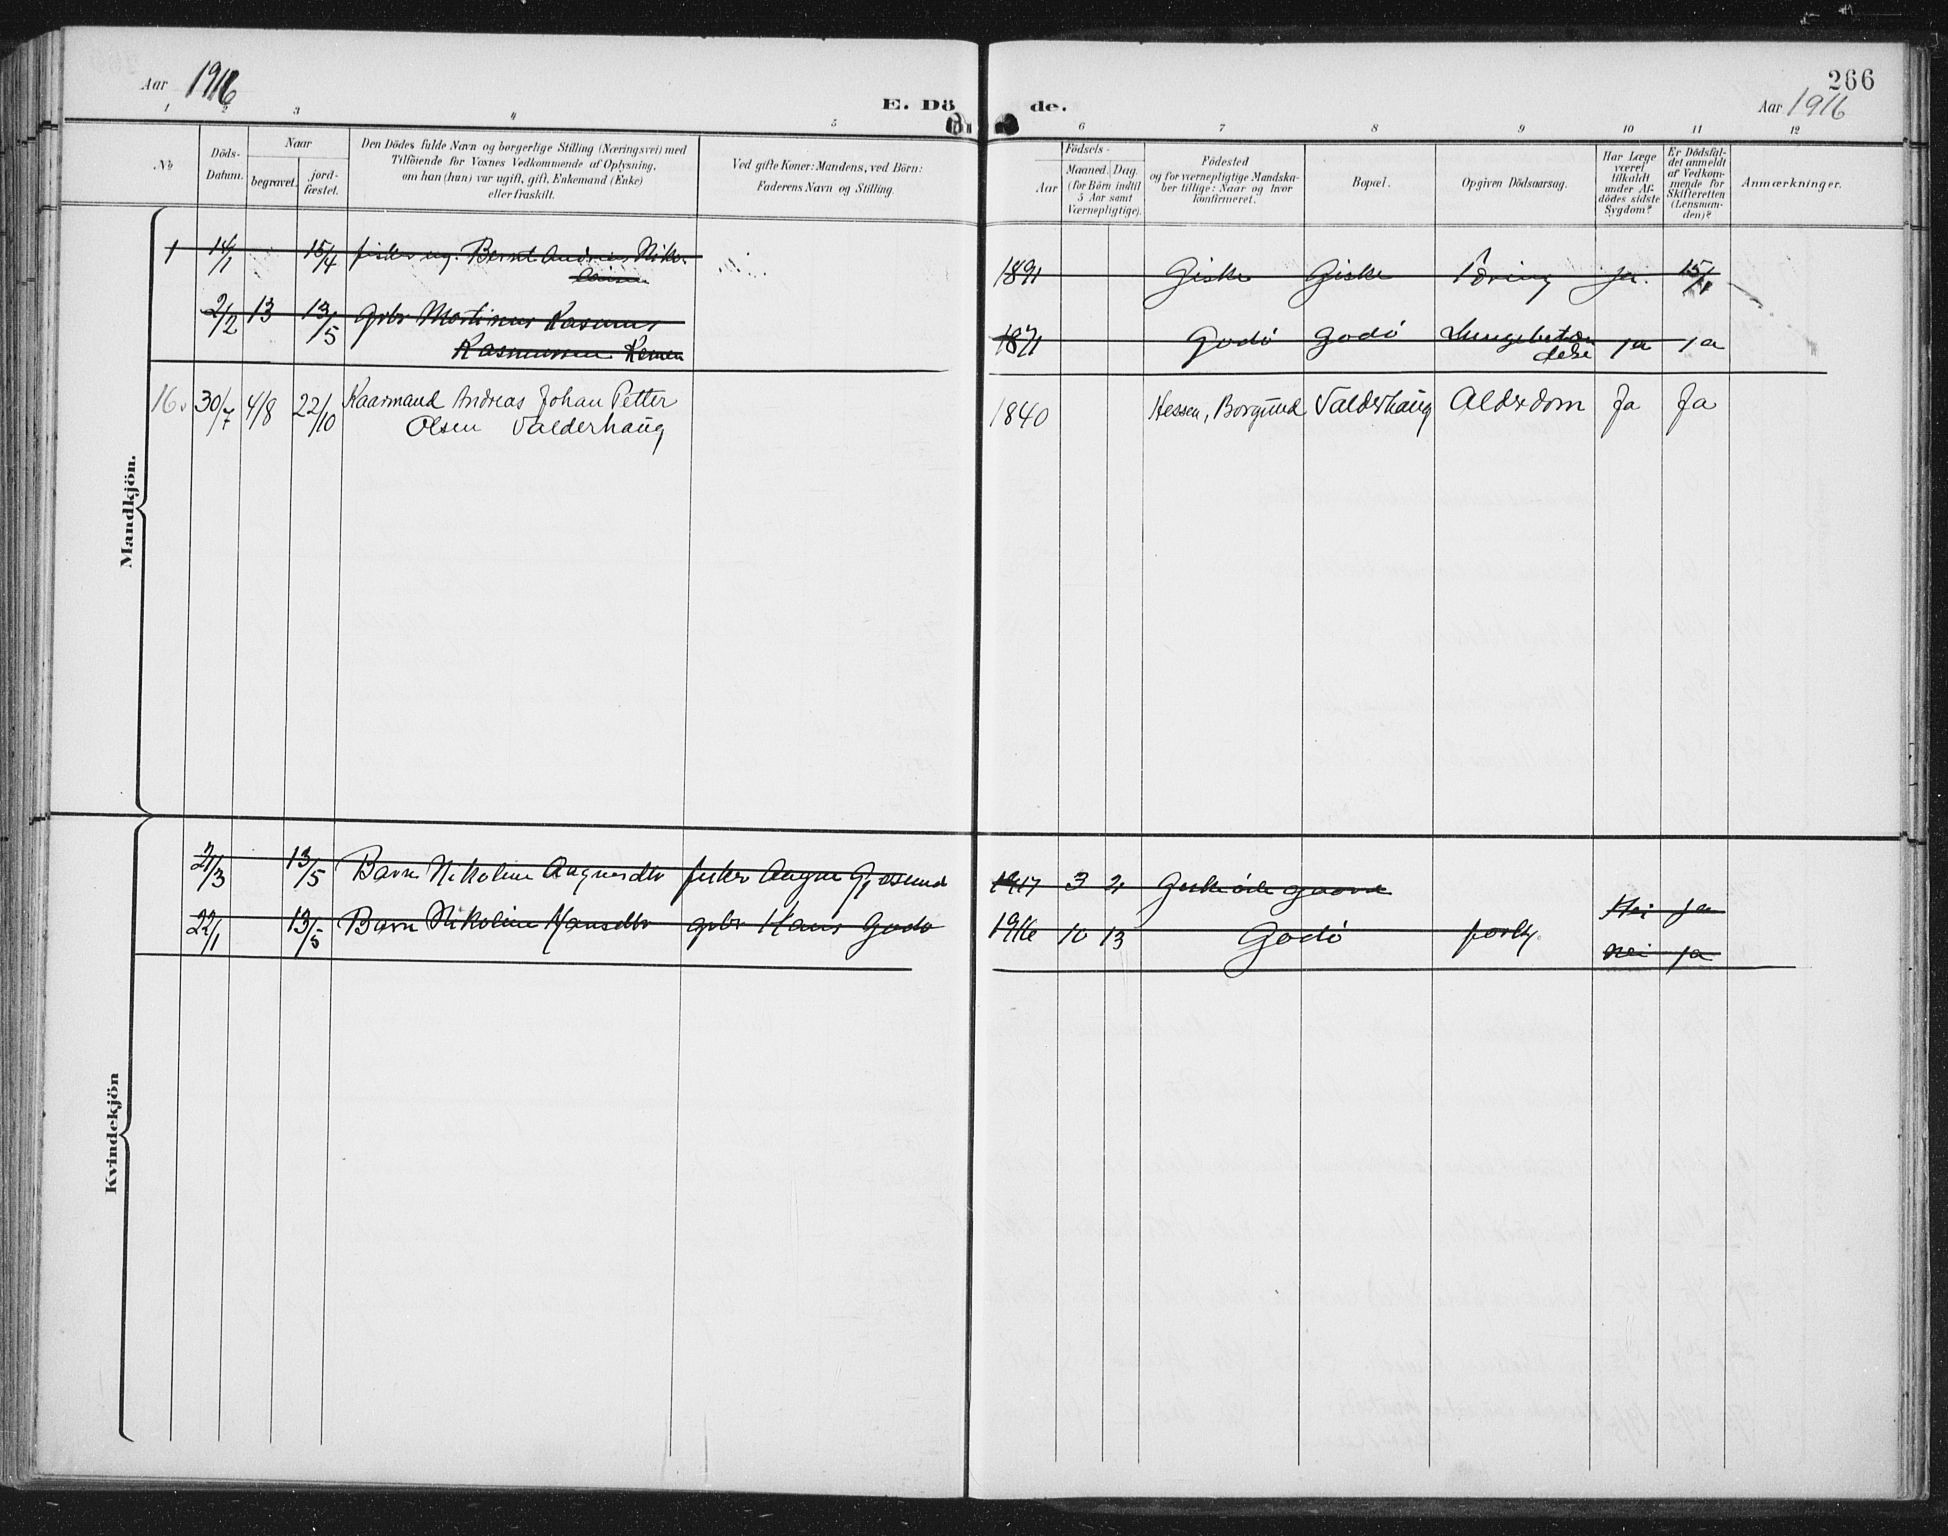 Aar 1916
E. Dö de.
266
Aar 1916
1 2 3 4 5 6 7 8 9 10 11 12
No
Döds-
Datum.
Naar
begravet.
jord-
fæstet.
Den Dödes fulde Navn og borgerlige Stilling (Næringsvei) med
Tilföiende for Voxnes Vedkommende af Oplysning,
om han (hun) var ugift, gift, Enkemand (Enke)
eller fraskilt.
Ved gifte Koner: Mandens, ved Börn:
Faderens Navn og Stilling.
Födsels-
Aar
Maaned. Dag.
(for Börn indtil
5 Aar samt
Værnepligtige).
Födested
og for værnepligtige Mandska-
ber tillige: Naar og hvor
konfirmeret.
Bopæl.
Opgiven Dödsaarsag.
Har Læge
været
tilkaldt
under Af-
dödes sidste
Sygdom?
Er Dödsfal-
det anmeldt
af Vedkom-
mende for
Skifteretten
(Lensman-
den)?
Anmærkninger.
Mandkjön.
1 14/1 15/4 fisker ug. Bernt Andreas Niko-
laisen
1891 Giske Giske Tæring ja. 15/1
2/2 13 13/5 gbr Martinus Rasmus
Rasmussen
1871 Godö Godö Lungebetæn
delse ja ja
16. 30/7 4/8 22/10 Kaarmand Andreas Johan Petter
Olsen Valderhaug
1840 Hessen, Borgund Valderhaug Alderdom Ja Ja
Kvindekjön
21/3 13/5 Barn Nikoline fisker
1917 3 2
Nei ja
22/1 13/5 Barn Nikoline Hansdtr gbr Hans Godö
1916 10 13 Godö
Nei ja